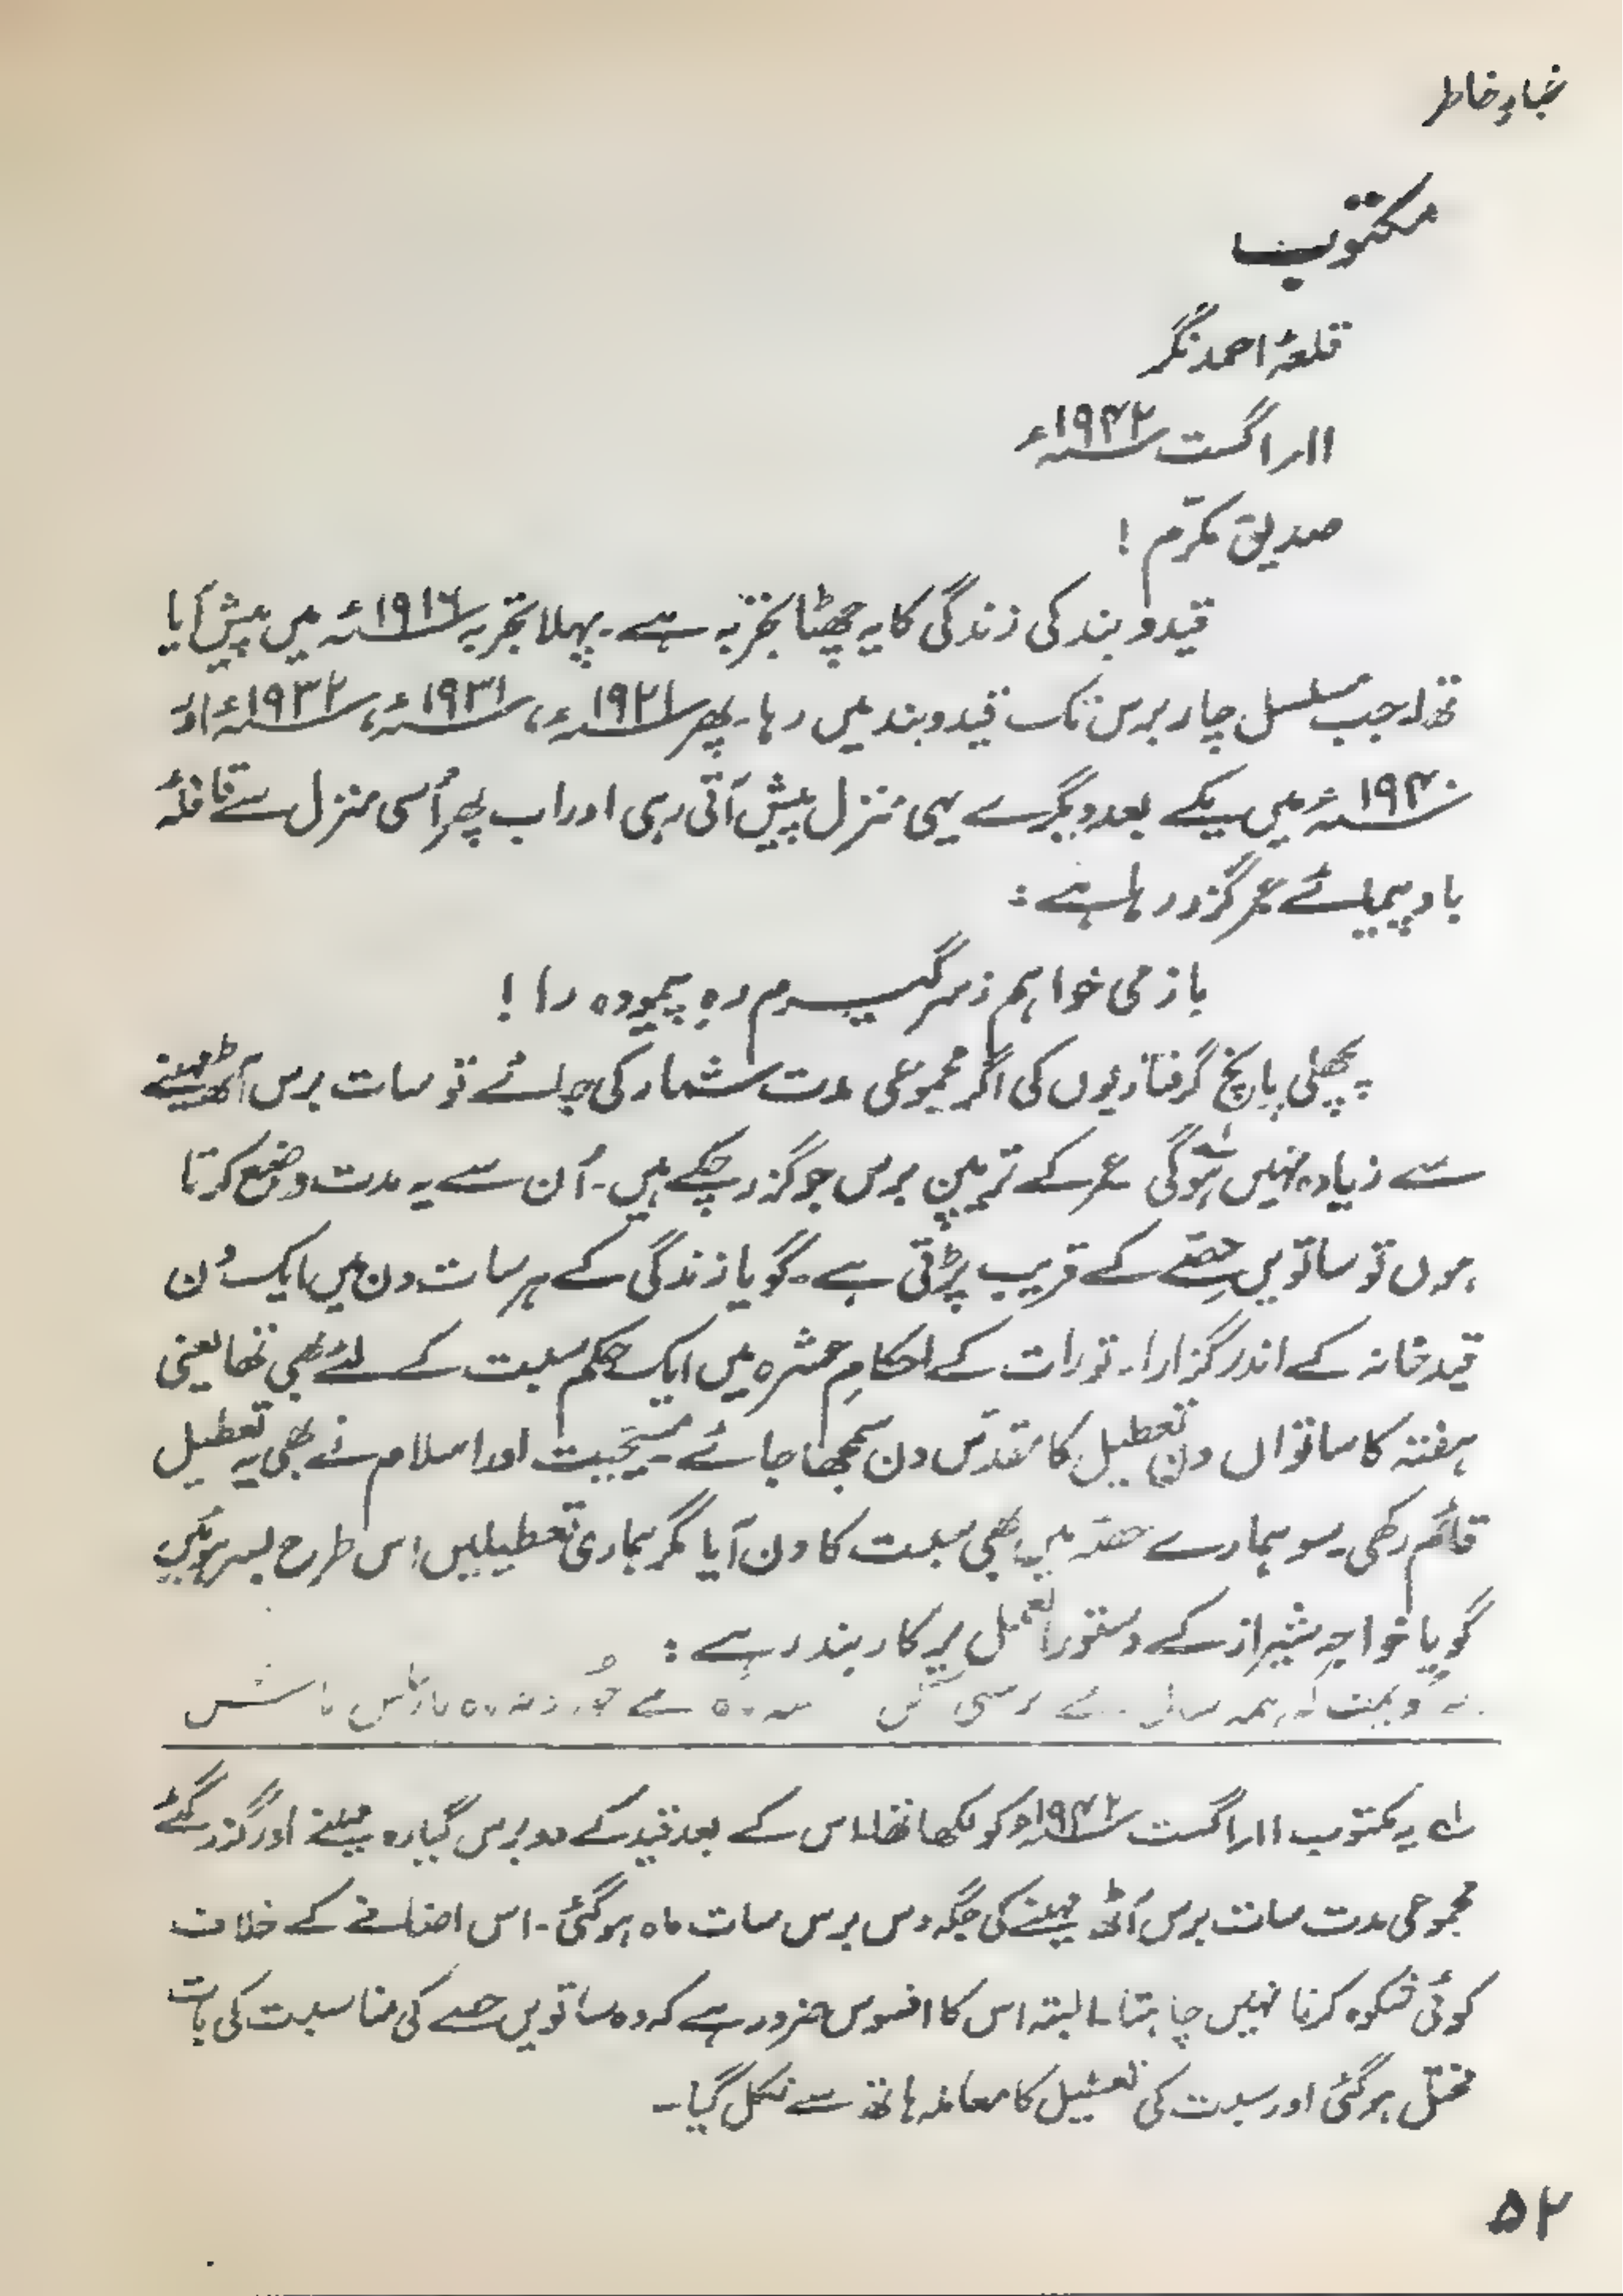 غبارِ خاطر
مکتوب
قلعۂ احمد نگر
۱۱ر اگست ۱۹۴۲ء
صدیق مکرّم !
قید و بند کی زندگی کا یہ چھٹا تجربہ ہے۔ پہلا تجربہ ۱۹۱۶ء میں پیش آیا
تھا جب مسلسل چار برس تک قید و بند میں رہا۔ پھر ۱۹۲۱ء، ۱۹۳۱ء، ۱۹۳۲ء اور
۱۹۴۰ء میں یکے بعد دیگرے یہی منزل پیش آتی رہی اور اب پھر اُسی منزل سے قافلۂ
باد پیمائے عمر گزر رہا ہے :
باز می خواہم ز سر گیرم رہِ پیمودہ را !
پچھلی پانچ گرفتاریوں کی اگر مجموعی مدت شمار کی جائے تو سات برس آٹھ مہینے
سے زیادہ نہیں ہوگی۱؎ عمر کے ترپین برس جو گزر چکے ہیں۔ اُن سے یہ مدت وضع کرتا
ہوں تو ساتویں حصّے کے قریب پڑتی ہے۔ گویا زندگی کے ہر سات دن میں ایک دن
قید خانہ کے اندر گزارا۔ تورات کے احکامِ عشرہ میں ایک حکم سبت کے لئے بھی تھا یعنی
ہفتہ کا ساتواں دن تعطیل کا مقدّس دن سمجھا جائے۔ مسیحیت اور اسلام نے بھی یہ تعطیل
قائم رکھی۔ سو ہمارے حصّہ میں بھی سبت کا دن آیا مگر ہماری تعطیلیں اس طرح بسر ہوئیں
گویا خواجہ شیراز کے دستور العمل پر کاربند رہے :
ہمہ سال مے پرستی کن سہ مہ مے خور و نہ مہ پارسا می باش
۱؎ یہ مکتوب ۱۱ر اگست ۱۹۴۲ء کو لکھا تھا۔ اس کے بعد قید کے دو برس گیارہ مہینے اور گزر گئے
مجموعی مدت سات برس آٹھ مہینے کی جگہ دس برس سات ماہ ہوگئی۔ اس اضافے کے خلاف
کوئی شکوہ کرنا نہیں چاہتا۔ البتہ اس کا افسوس ضرور ہے کہ وہ ساتویں حصے کی مناسبت کی بات
مختل ہوگئی اور سبت کی تعطیل کا معاملہ ہاتھ سے نکل گیا۔
۵۲